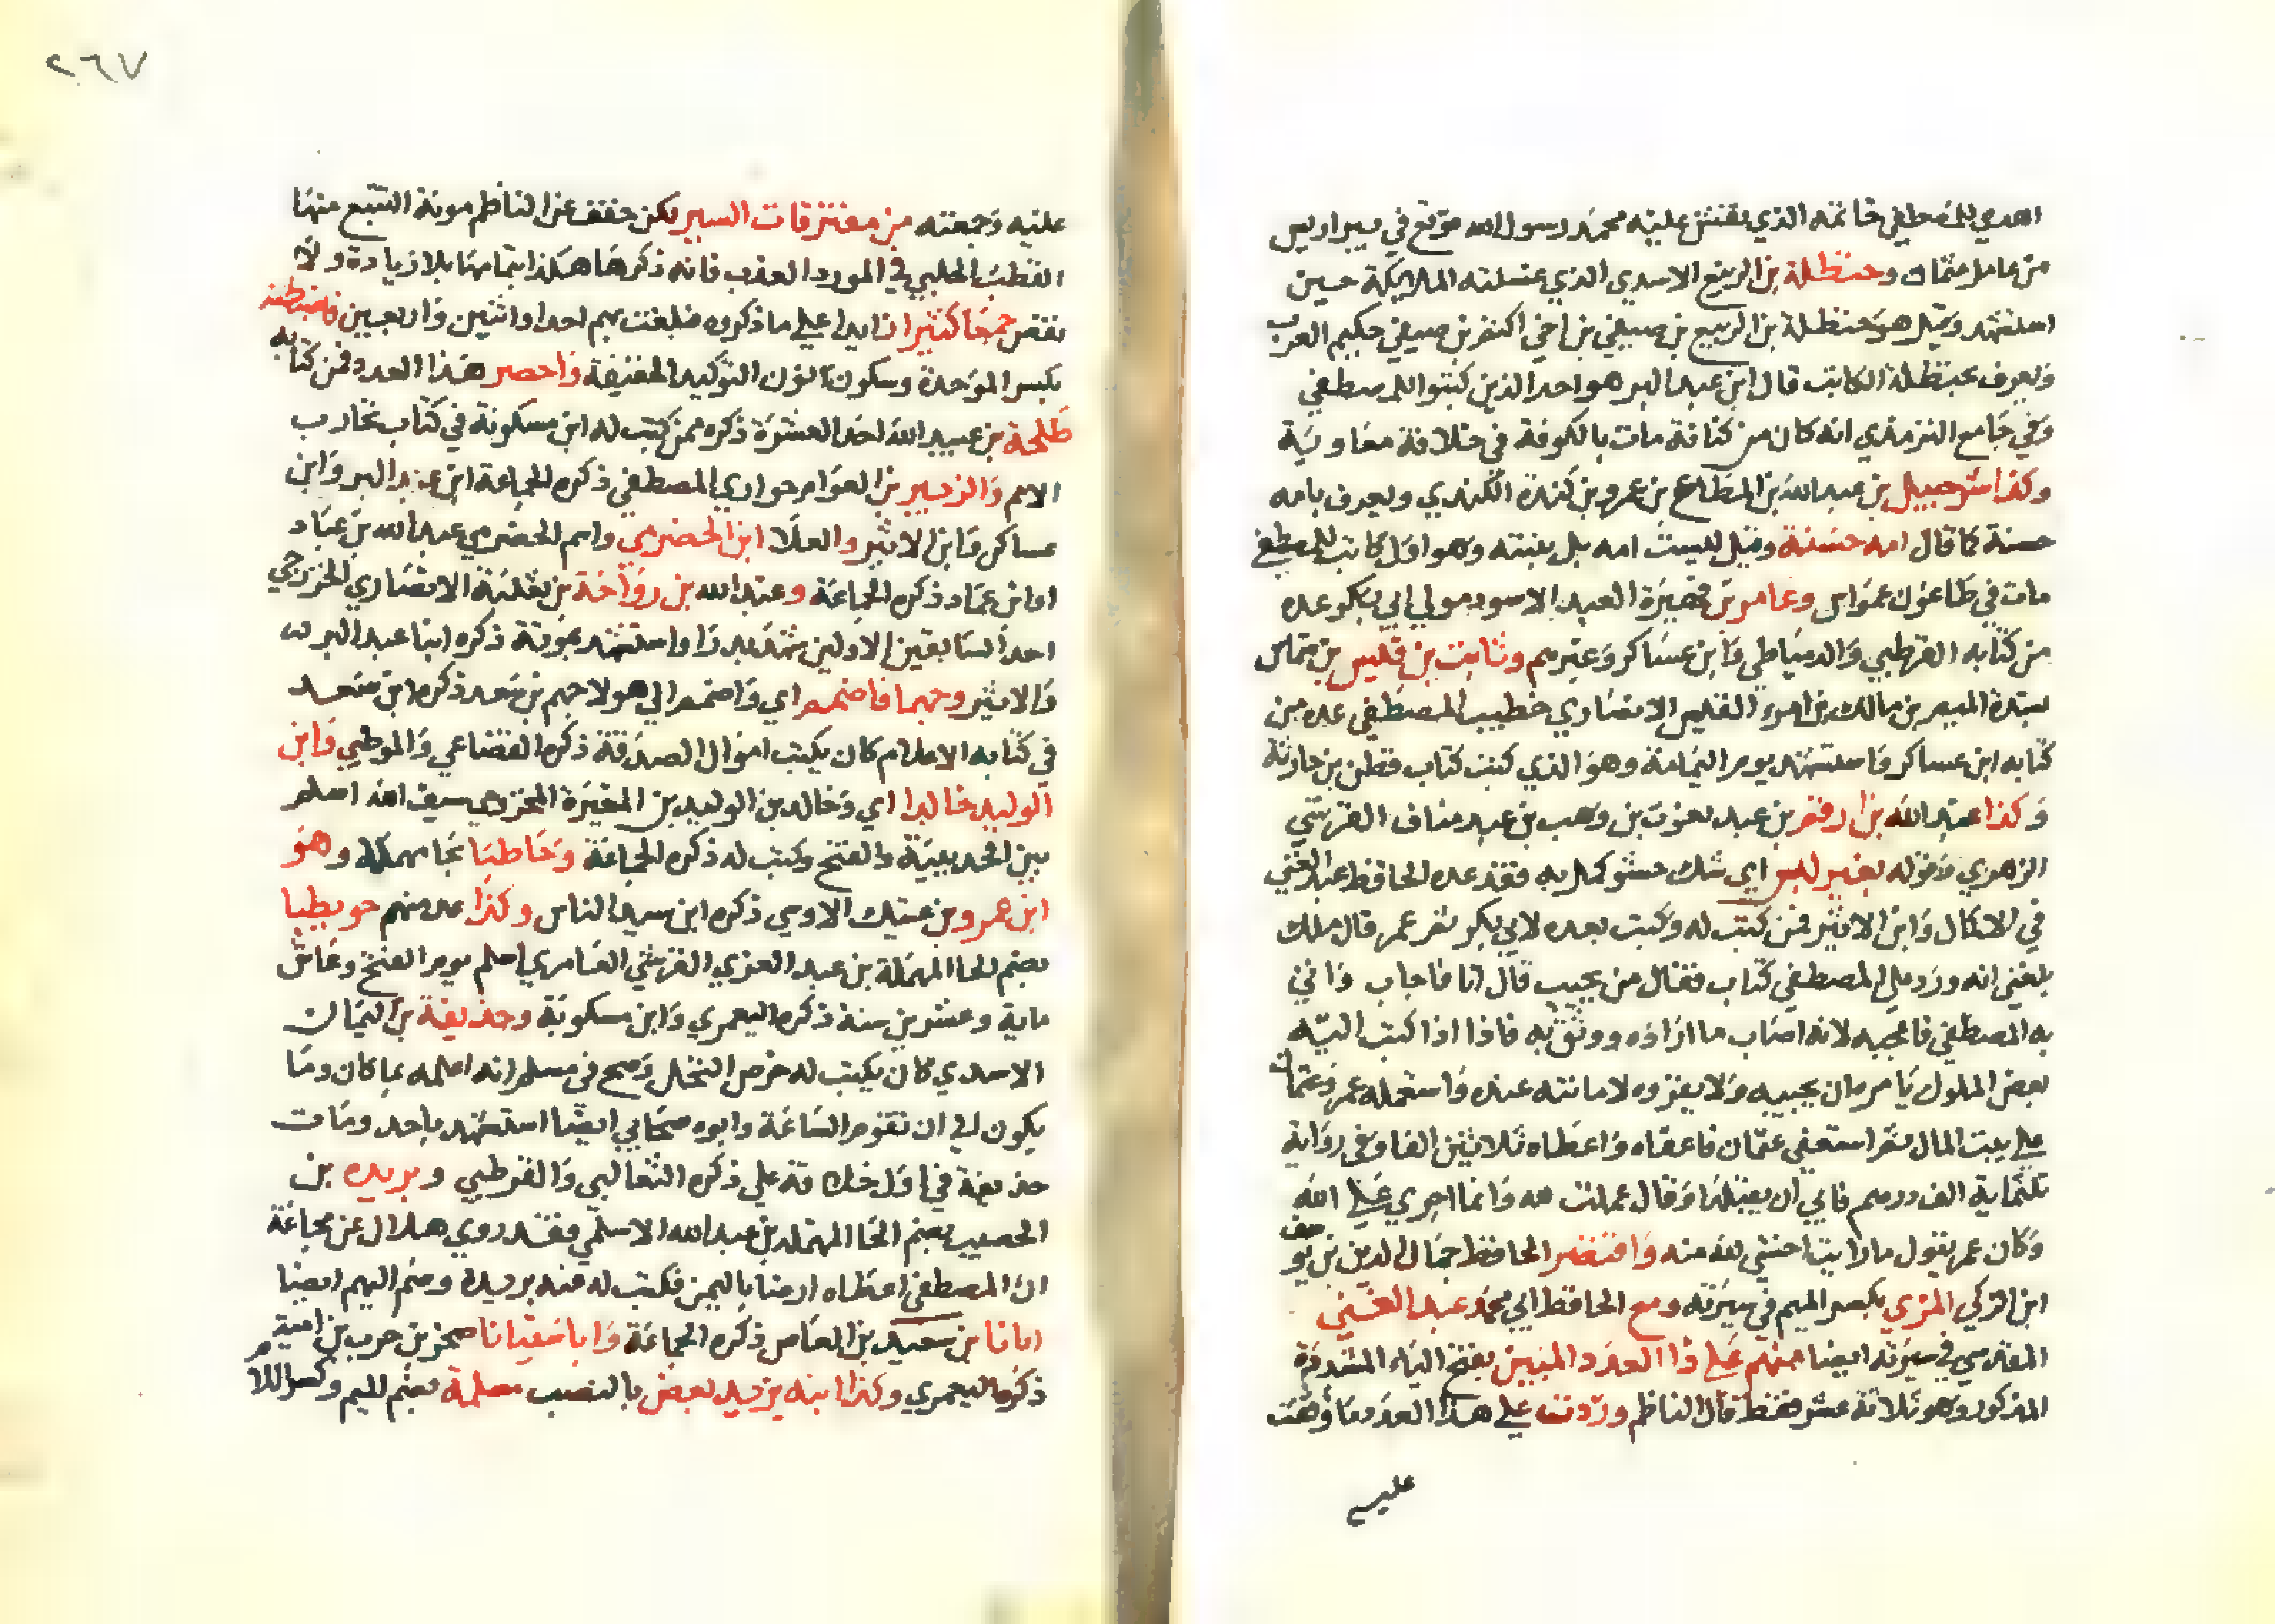 اهدي للمصطفى خاتمه الذي نقش عليه محمد رسول الله موقع في بير اريس
من عامل عثمان وحنظلة بن الربيع الاسدي الذي غسلته الملايكة حين
استشهد وقيل هو حنظلة بن الربيع بن صيفي بن اخي اكثم بن صيفي حكيم العرب
ويعرف بحنظلة الكاتب قال ابن عبد البر هو احد الذين كتبوا للمصطفى
وفي جامع الترمذي انه كان من كتابه مات بالكوفة في خلافة معاوية
وكذا شرحبيل بن عبد الله بن المطاع بن عمرو بن كندة الكندي ويعرف بامه
حسنة كما قال امه حسنة وقيل ليست امه بل تبنته وهو اول كاتب للمصطفى
مات في طاعون عمواس وعامر بن فهيرة العبد الاسود مولى ابي بكر عده
من كتابه القرطبي والدمياطي وابن عساكر وغيرهم وثابت بن قيس بن شماس
بن مالك بن امرء القيس الانصاري خطيب المصطفى عده من
كتابه ابن عساكر واستشهد يوم اليمامة وهو الذي كتب كتاب قطن بن حارثة
وكذا عبد الله بن ارقم بن عبد يغوث بن وهب بن عبد مناف القرشي
الزهري وقوله بغير لبس اي شك حشو كمل به فقد عده الحافظ عبد الغني
في الاكمال وابن الاثير فمن كتب له وكتب بعده لابي بكر ثم عمر قال ملك
بلغني انه ورد على المصطفى كتاب فقال من يجيب قال انا فاجاب واتى
به المصطفى فاعجبه لانه اصاب ما اراده ووثق به فاذا اذا كتب اليه
بعض الملوك يامره ان يجيبه ولا يقروه لامانته عنده واستعمله عمر وعثمان
على بيت المال ثم استعفى عثمان فاعفاه واعطاه ثلاثين الفا وفي رواية
ثلثماية الف درهم فابى ان يقبلها وقال عملت لله وانما اجري على الله
وكان عمر يقول ما رايت اخشى لله منه واقتصر الحافظ جمال الدين بن يوسف
ابن الزكي المزي بكسر الميم في سيرته ومع الحافظ ابي محمد عبد الغني
المقدسي في سيرته ايضا منهم على ذا العدد المبين بفتح الياء المشددة
المذكور وهو ثلاثة عشر فقط قال الناظم وزدت على هذا العدد معا وقفت
عليه
٢٦٧
عليه وجمعته من مفترقات السير لكن خفف عن الناظم مونة التتبع منها
القطب الحلبي في المورد العذب فانه ذكرها هكذا بتمامها بلا زيادة ولا
نقص جمعا كثيرا زايدا على ما ذكروه فبلغت بهم احدا واثنين واربعين فاضبطنه
بكسر الموحدة وسكون نون التوكيد الخفيفة واحصر هذا العدد فمن كتابه
طلحة بن عبيد الله احد العشرة ذكره ممن كتب له ابن مسكونة في كتاب تجارب
الامم والزبير بن العوام حواري المصطفى ذكره الجماعة ابن عبد البر وابن
عساكر وابن الاثير والعلا ابن الحضرمي واسم الحضرمي عبد الله بن عباد
او ابن عماد ذكره الجماعة وعبد الله بن رواحة بن ثعلبة الانصاري الخزرجي
احد السابقين الاولين شهد بدرا واستشهد بموتة ذكره ابنا عبد البر
والاثير وجهما فاضمم اي واضمم الى هولا جهم بن سعد ذكره ابن سعد
في كتابه الاعلام كان يكتب اموال الصدقة ذكره القضاعي والموطبي وابن
الوليد خالدا اي وخالد بن الوليد بن المغيرة المخزومي سيف الله اسلم
بين الحديبية والفتح وكتب له ذكره الجماعة وحاطبا بحا مهملة وهو
ابن عمرو بن عتيك الاوسي ذكره ابن سيد الناس وكذا عد منهم حويطبا
بضم الحا المهملة بن عبد العزي القرشي العامري اسلم يوم الفتح وعاش
ماية وعشرين سنة ذكره اليعمري وابن مسكونة وحذيفة بن اليمان
الاسدي كان يكتب له خرص النخل وصح في مسلم انه اعلمه بما كان وما
يكون الى ان تقوم الساعة وابوه صحابي ايضا استشهد باحد ومات
حذيفة في اول خلافة علي ذكره الثعالبي والقرطبي وبريده بن
الحصيب بضم الحا المهملة بن عبد الله الاسلمي فقد روي هلال عن مجاعة
ان المصطفى اعطاه ارضا باليمن فكتب له عنه بريدة وضم اليهم ايضا
ابانا بن سعيد بن العاص ذكره الجماعة وابا سفيانا صخر بن حرب بن امية
ذكره اليعمري وكذا ابنه يزيد لبعض بالنصب مسلمة بضم الميم وكسر اللام